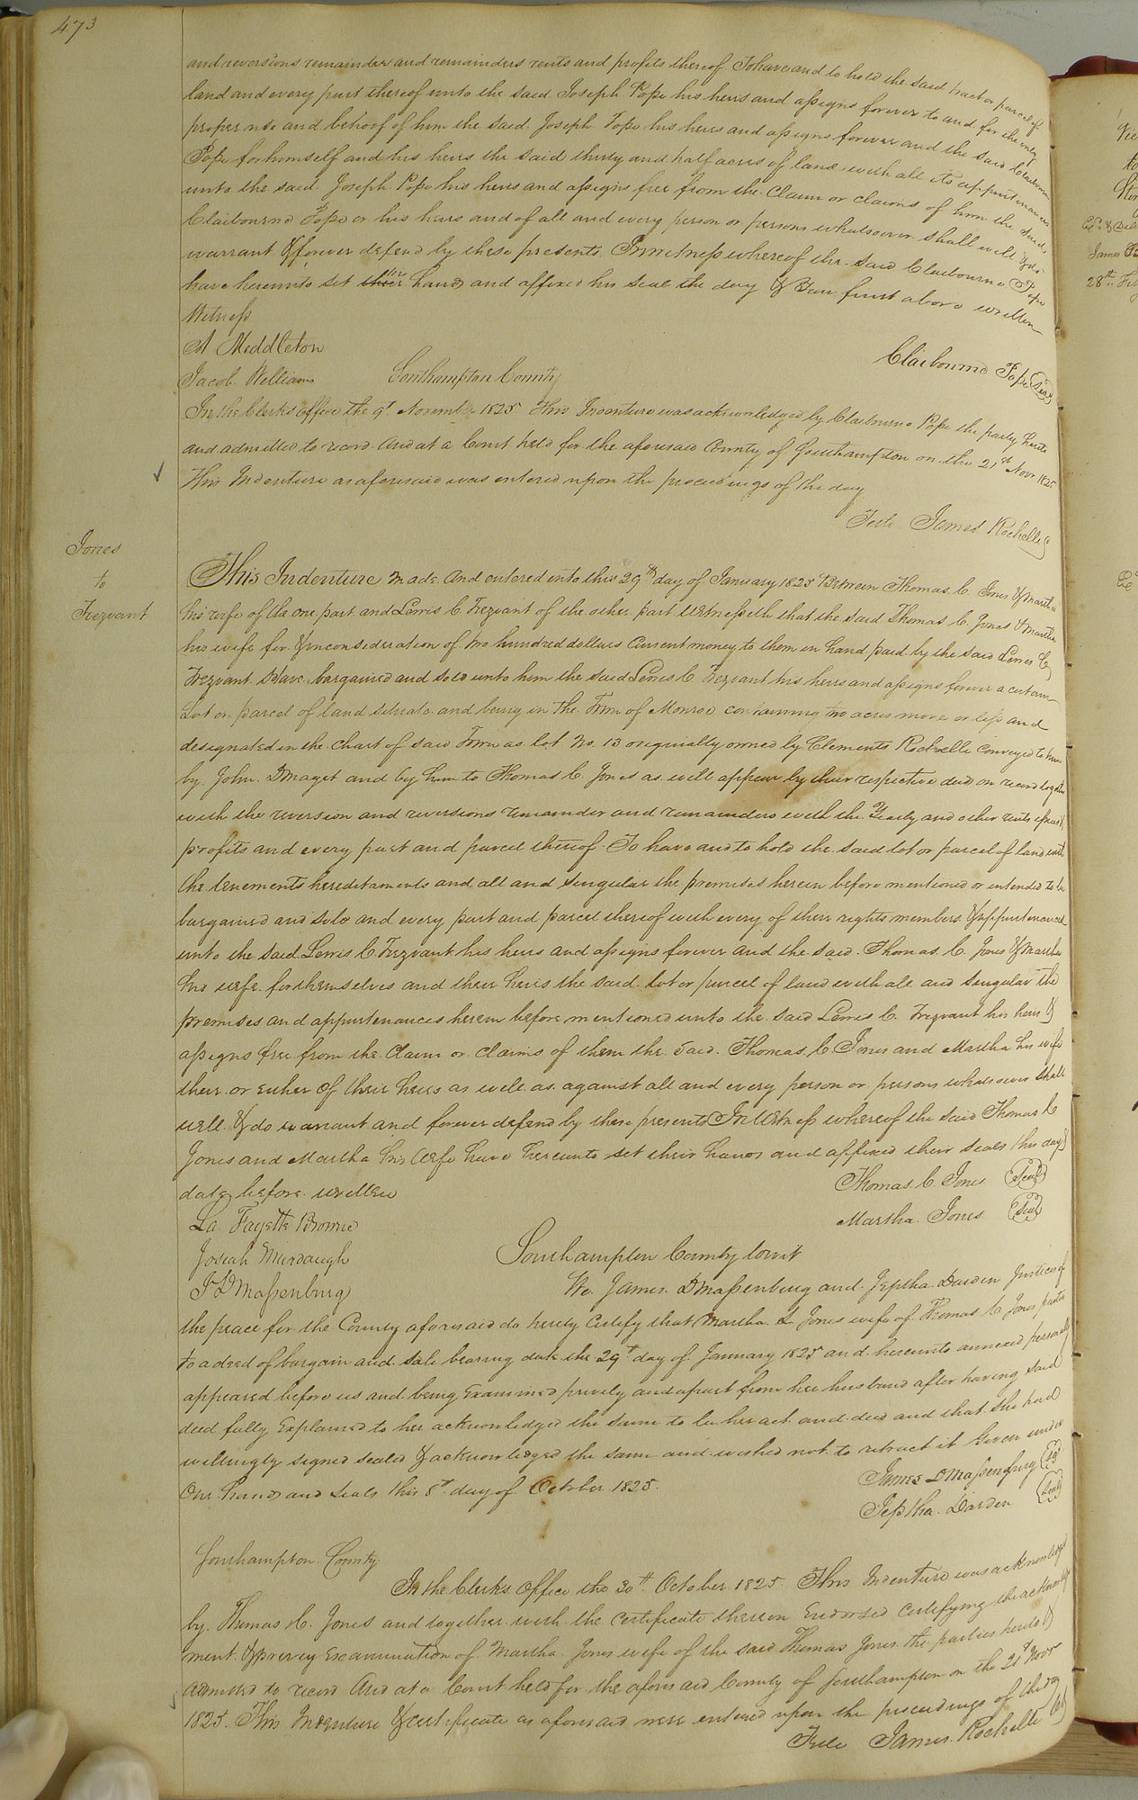 473
and reversions remainder and remainders rents and profits thereof To have and to hold the said tract or parcel of
land and every part thereof unto the said Joseph Pope his heirs and assigns forever to and for the only
proper use and behoof of him the said Joseph Pope his heirs and assigns forever and the said Claibourne
Pope for himself and his heirs the said thirty and half acres of land with all its appurtenances
unto the said Joseph Pope his heirs and assigns free from the Claim or claims of him the said
Claibourne Pope or his heirs and of all and every person or persons whatsoever shall will & do
warrant & forever defend by these presents In witness whereof the said Claibourne Pope
have hereunto set his hand and affixed his seal the day & year first above written
Witness
A Middleton
Claibourne Pope (Seal)
Jacob Williams Southampton County
In the Clerks office the 9t November 1825 This Indenture was acknowledged by Claibourne Pope the party hereto
and admitted to record And at a Court held for the aforesaid County of Southampton on the 21st Novr 1825
This Indenture as aforesaid was entered upon the proceedings of the day
Teste James Rochelle C
Jones
to
Trezvant
This Indenture made and entered into this 29th day of January 1825 Between Thomas C. Jones & Martha
his wife of the one part and Lewis C Trezvant of the other part Witnesseth that the said Thomas C. Jones & Martha
his wife for & in consideration of two hundred dollars Current money to them in hand paid by the said Lewis C
Trezvant have bargained and sold unto him the said Lewis C Trezvant his heirs and assigns forever a certain
Lot or parcel of land situate and being in the Town of Monroe containing two acres more or less and
designated in the chart of said Town as lot No. 13 originally owned by Clements Rochelle Conveyed to him
by John D Maget and by him to Thomas C. Jones as will appear by their respective deed on record together
with the reversion and reversions remainder and remainders with the Yearly and other rents issues
profits and every part and parcel thereof To have and to hold the said lot or parcel of land with
the tenements hereditaments and all and singular the premises herein before mentioned or intended to be
bargained and sold and every part and parcel thereof with every of their rights members & appurtenances
unto the said Lewis C. Trezvant his heirs and assigns forever and the said Thomas C. Jones & Martha
his wife for themselves and their heirs the said lot or parcel of land with all and singular the
premises and appurtenances herein before mentioned unto the said Lewis C. Trezvant his heirs &
assigns free from the Claim or claims of them the said Thomas C Jones and Martha his wife
their or Either of their heirs as well as against all and every person or persons whatsoever shall
will & do warrant and forever defend by these presents In Witness whereof the said Thomas C
Jones and Martha his Wife have hereunto set their hands and affixed their seals this day &
date before written
Thomas C Jones (Seal)
La Fayette Browne
Martha Jones (Seal)
Josiah Murdaugh
Southampton County towit
J D Massenburg
We James D Massenburg and Jeptha Darden Justices of
the peace for the County aforesaid do hereby Certify that Martha L Jones wife of Thomas C Jones parties
to a deed of bargain and sale bearing date the 29t day of January 1825 and hereunto annexed personally
appeared before us and being Examined privily and apart from her husband after having said
deed fully Explained to her acknowledged the same to be her act and deed and that she had
willingly signed sealed & acknowledged the same and wished not to retract it Given under
Our hands and seals this 8t day of October 1825.
James D Massenburg (Sl)
Jeptha Darden (Seal)
Southampton County
In the Clerks Office the 30th October 1825 This Indenture was acknowledged
by Thomas C. Jones and together with the Certificate thereon Endorsed Certifying the acknowledg
ment & privy Examination of Martha Jones wife of the said Thomas Jones the parties hereto &
admitted to record And at a Court held for the aforesaid County of Southampton on the 21st Novr
1825. This Indenture & Certificate as aforesaid were entered upon the proceedings of the day
Teste James Rochelle